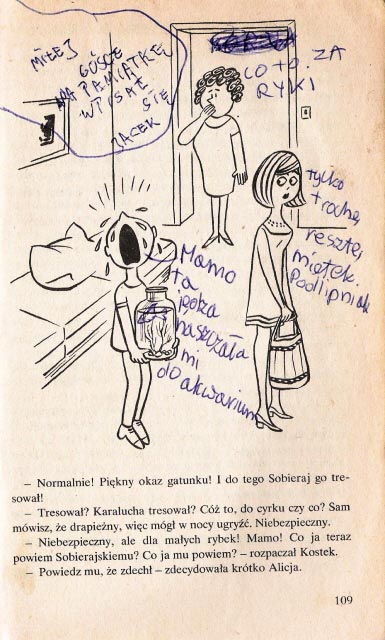 MIŁEJ
GOŚCE
NA PAMIĄTKĘ
WPISAŁ
SIĘ
JACEK
CO TO ZA
RYKI
tylko
trochę,
resztę
Podlipniak
Mamo
ta
jędza
naszczała
mi
do akwarium
– Normalnie! Piękny okaz gatunku! I do tego Sobieraj go tre-
sował!
– Tresował? Karalucha tresował? Cóż to, do cyrku czy co? Sam
mówisz, że drapieżny, więc mógł w nocy ugryźć. Niebezpieczny.
– Niebezpieczny, ale dla małych rybek! Mamo! Co ja teraz
powiem Sobierajskiemu? Co ja mu powiem? – rozpaczał Kostek.
– Powiedz mu, że zdechł – zdecydowała krótko Alicja.
109